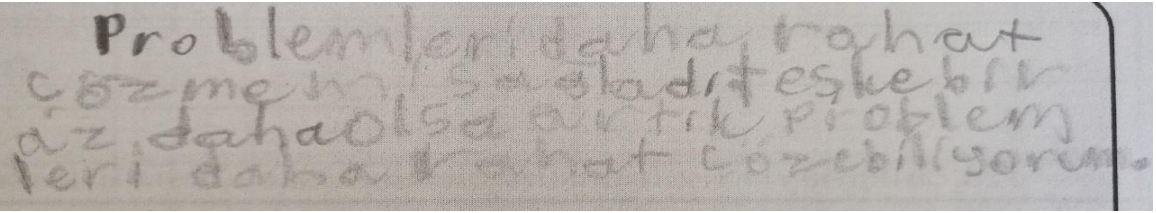 Problemleri daha rahat
çözmemi sağladı teşke bir
az daha olsa artık problem
leri daha rahat çözebiliyorum.